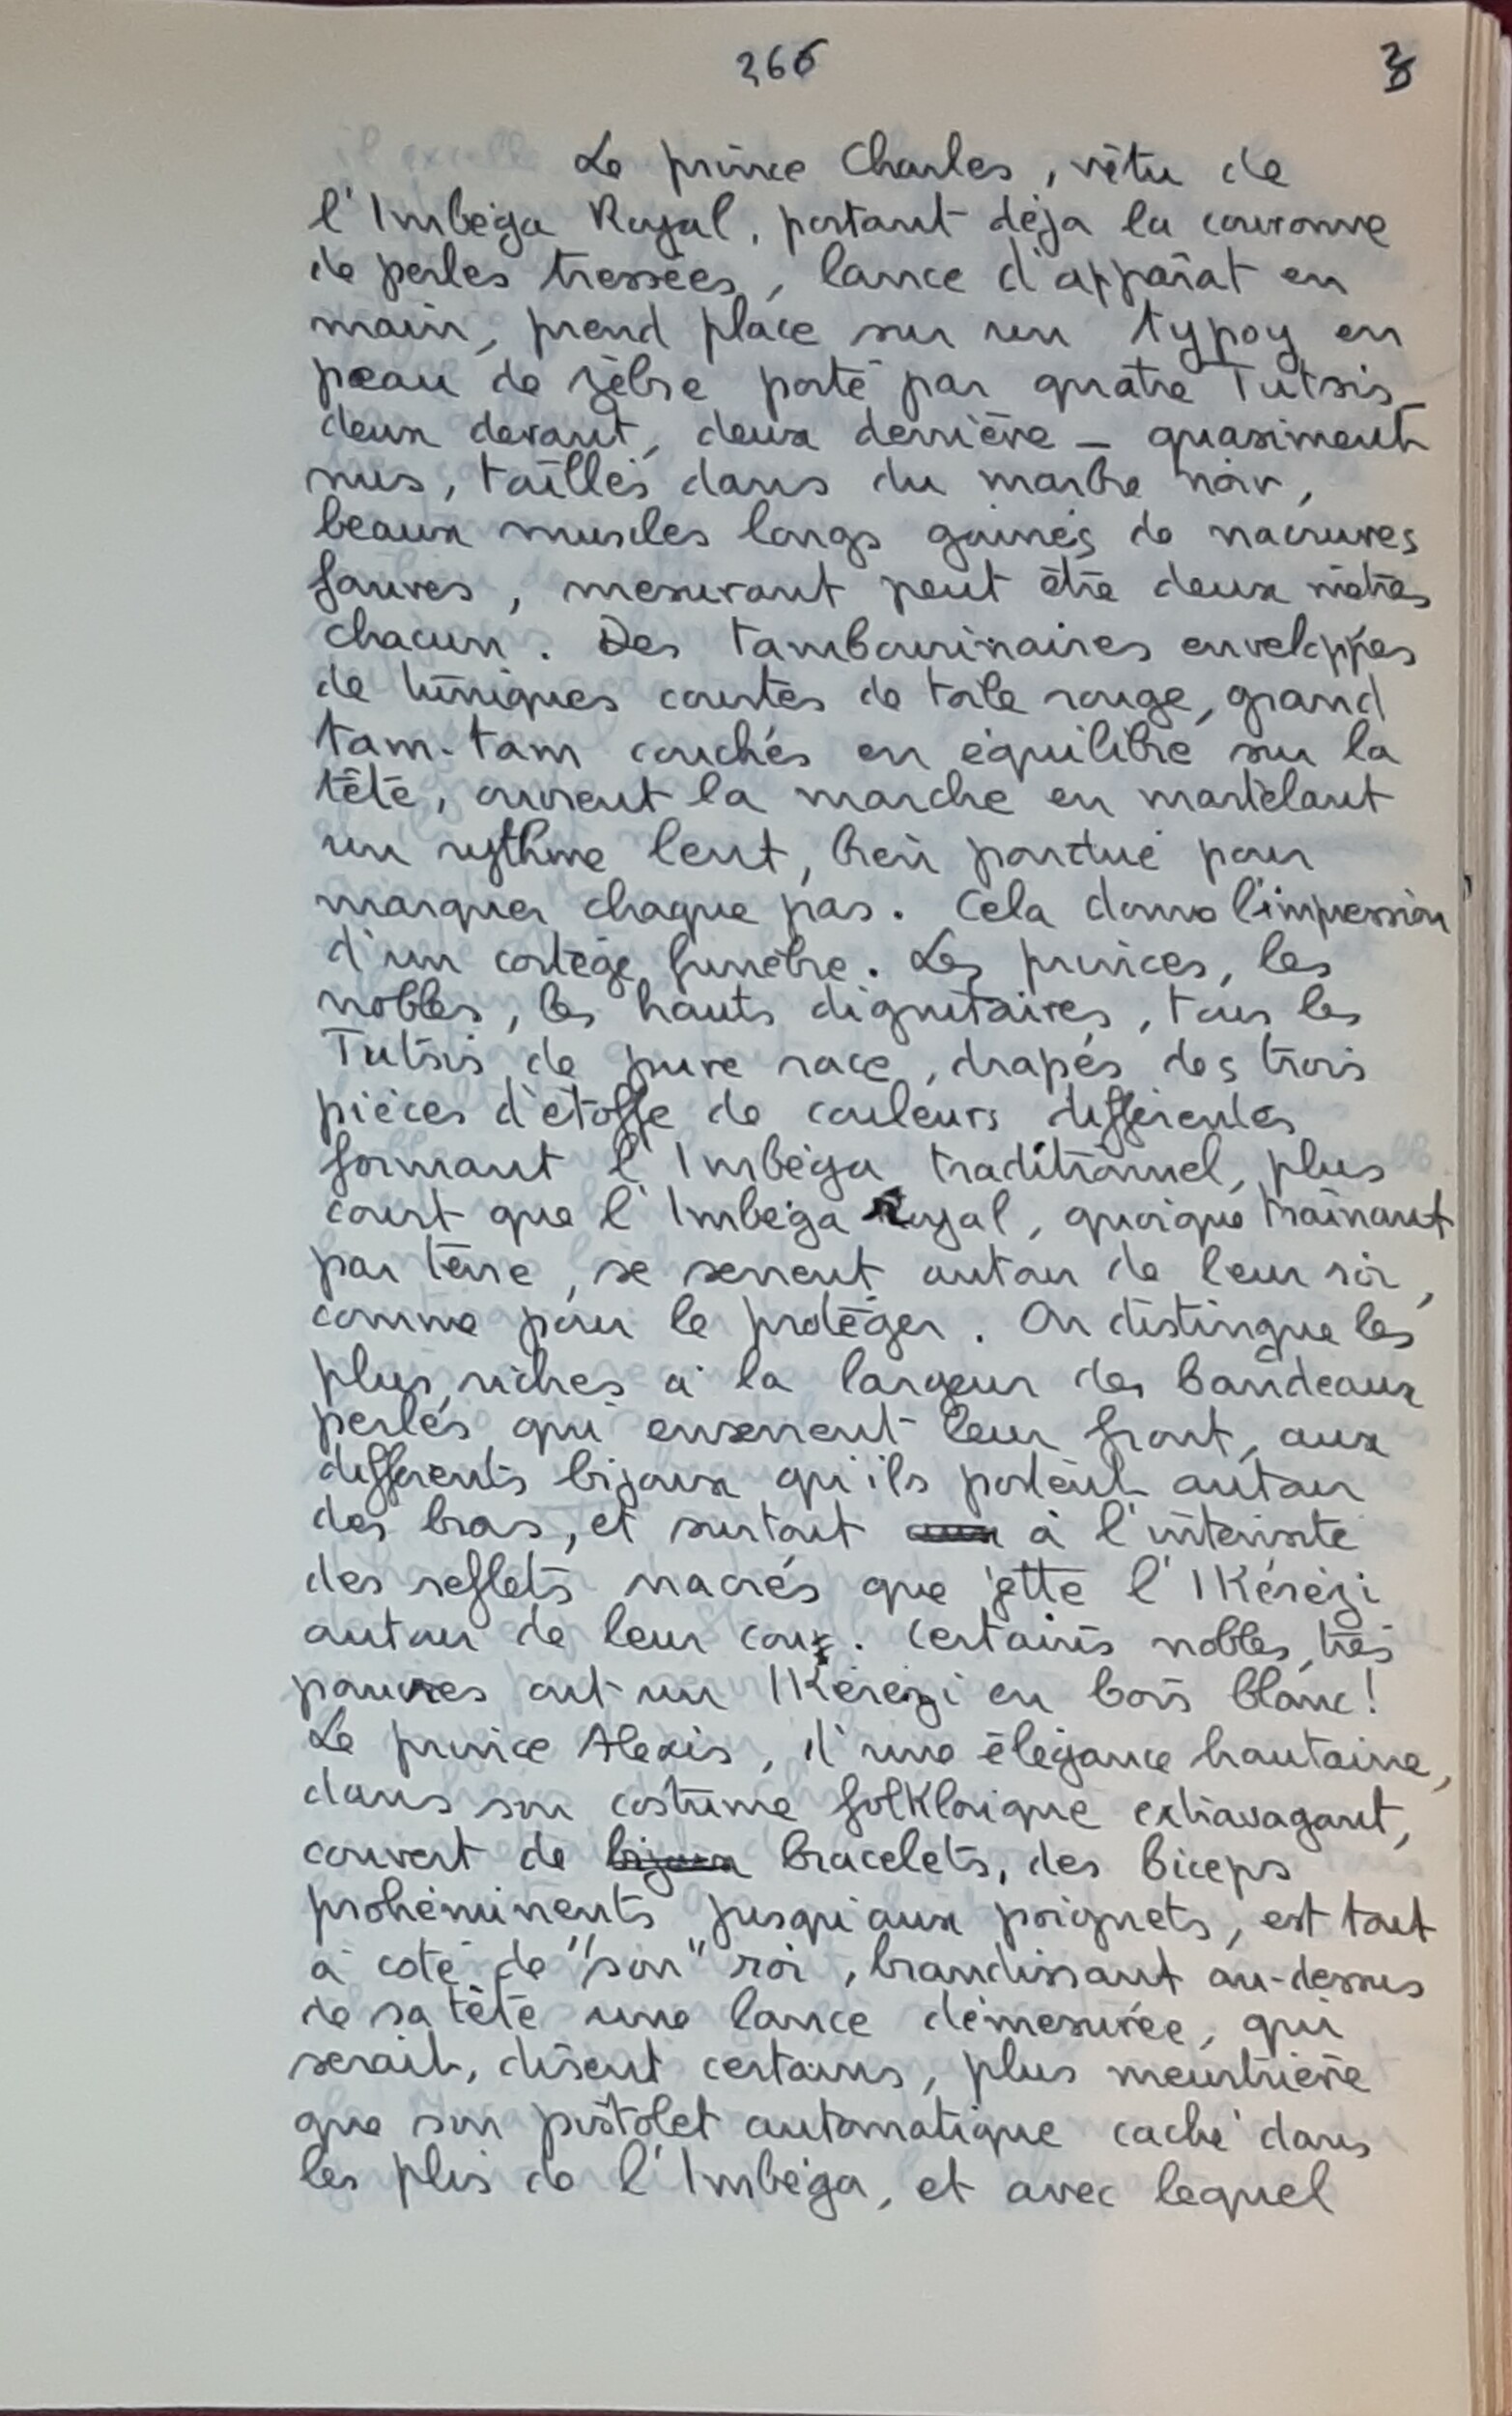 266 3
Le prince Charles, vêtu de
l'Imbéga Royal, portant déja la couronne
de perles tressées, lance d'apparat en
main, prend place sur un typoy en
peau de zèbre porté par quatre Tutsis_
deux devant, deux derrière _ quasiment
nus, taillés dans du marbre noir,
beaux muscles longs gainés de nacrures
fauves, mesurant peut être deux mètres
chacun. Des tambourinaires enveloppés
de tuniques courtes de toile rouge, grand
tam-tam couchés en équilibre sur la
tête, ouvrent la marche en martelant
un rythme lent, bien ponctué pour
marquer chaque pas. Cela donne l'impression
d'un cortège funèbre. Les princes, les
nobles, les hauts dignitaires, tous les
Tutsis de pure race, drapés des trois
pièces d'étoffe de couleurs différentes
formant l'Imbéga traditionnel, plus
court que l'Imbéga Royal, quoique traînant
par terre, se serrent autour de leur roi,
comme pour le protéger. On distingue les
plus riches à la largeur des bandeaux
perlés qui enserrent leur front, aux
différents bijoux qu'ils portent autour
des bras, et surtout à l'intensité
des reflets nacrés que jette l'IKérézi
autour de leur cou. Certains nobles très
pauvres ont un IKérézi en bois blanc!
Le prince Alexis, d'une élégance hautaine,
dans son costume folKlorique extravagant,
couvert de bijoux bracelets, des biceps
prohéminents jusqu'aux poignets, est tout
à coté de "son" roi, brandissant au-dessus
de sa tête une lance démesurée, qui
serait, disent certains, plus meurtrière
que son pistolet automatique caché dans
les plis de l'Imbéga, et avec lequel